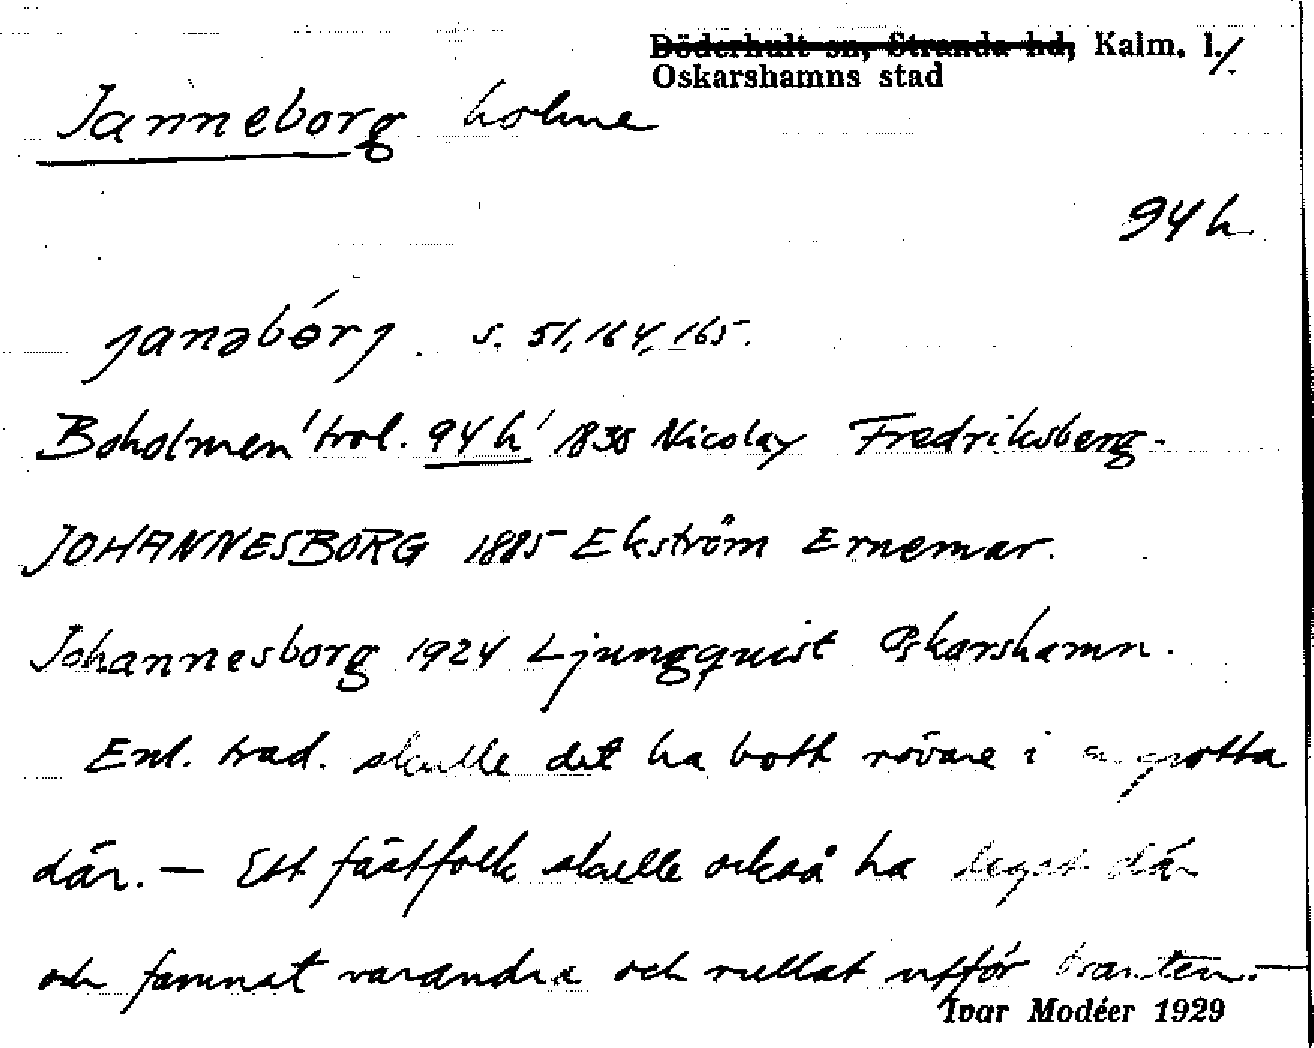 Döderhult sn, Stranda hd, Kalm. l.
Oskarshamns stad
Janneborg holme
94 h
janəbórj. s. 51, 164, 165.
Boholmen 'trol. 94 h' 1838 Nicolay Fredriksberg.
JOHANNESBORG 1885 Ekström Ernemar.
Johannesborg 1924 Ljungquist Oskarshamn.
Enl. trad. skulle det ha bott rövare i en grotta
där. — Ett fästfolk skulle också ha legat där
och famnat varandra och rullat utför branten. —
Ivar Modéer 1929